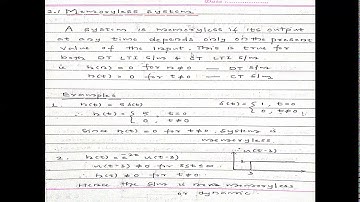 2.1 Memoryless system
A system is memoryless if its output
at any time depends only on the present
value of the input. This is true for
both DT LTI S/m & CT LTI S/m
ie h(n) = 0 for n≠0 — DT S/m
h(t) = 0 for t≠0 — CT S/m
Examples
1. h(t) = 5 δ(t) δ(t) = { 1, t=0
∴ h(t) = { 5, t=0 { 0, t≠0
{ 0, t≠0
Since h(t) = 0 for t≠0, system is
memoryless
2. h(t) = u(t-3) u(t-3)
∴ h(t) ≠ 0 for 3≤t≤∞
∴ h(t) ≠ 0 for t≠0 3
Hence the S/m is memoryless
or dynamic.